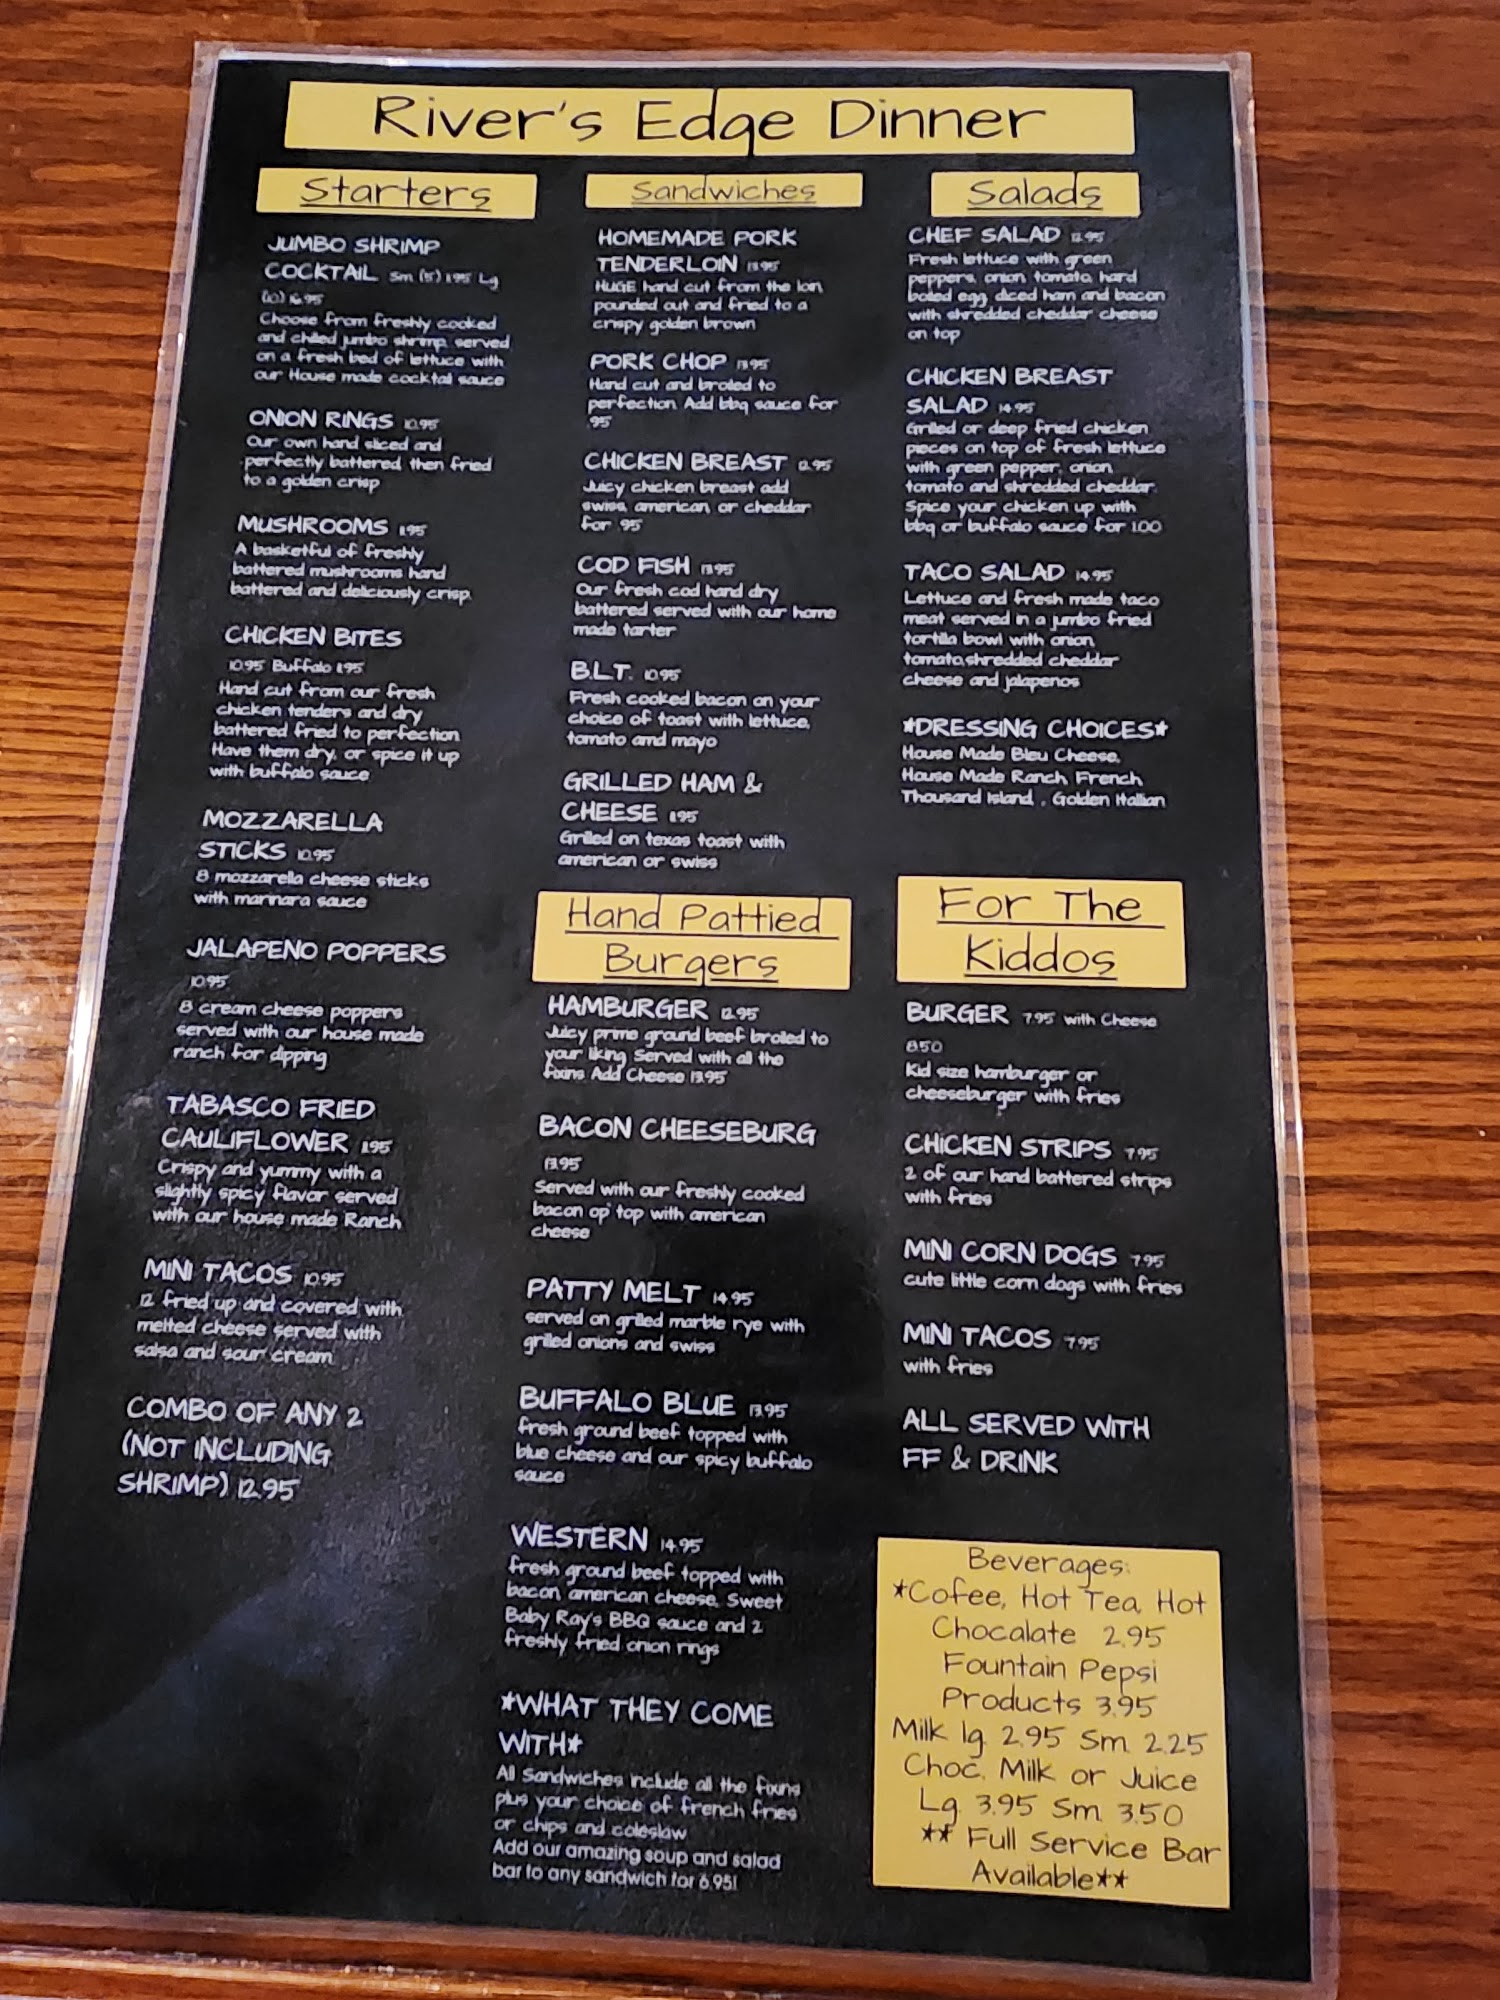 River's Edge Dinner
Starters
JUMBO SHRIMP
COCKTAIL Sm (5) 11.95 Lg
(10) 16.95
Choose from freshly cooked
and chilled jumbo shrimp, served
on a fresh bed of lettuce with
our House made cocktail sauce
ONION RINGS 10.95
Our own hand sliced and
perfectly battered then fried
to a golden crisp
MUSHROOMS 11.95
A basketful of freshly
battered mushrooms hand
battered and deliciously crisp.
CHICKEN BITES
10.95 Buffalo 11.95
Hand cut from our fresh
chicken tenders and dry
battered fried to perfection.
Have them dry, or spice it up
with buffalo sauce
MOZZARELLA
STICKS 10.95
8 mozzarella cheese sticks
with marinara sauce
JALAPENO POPPERS
10.95
8 cream cheese poppers
served with our house made
ranch for dipping
TABASCO FRIED
CAULIFLOWER 11.95
Crispy and yummy with a
slightly spicy flavor served
with our house made Ranch
MINI TACOS 10.95
12 fried up and covered with
melted cheese served with
salsa and sour cream
COMBO OF ANY 2
(NOT INCLUDING
SHRIMP) 12.95
Sandwiches
HOMEMADE PORK
TENDERLOIN 13.95
HUGE hand cut from the loin,
pounded out and fried to a
crispy golden brown
PORK CHOP 13.95
Hand cut and broiled to
perfection. Add bbq sauce for
.95
CHICKEN BREAST 12.95
Juicy chicken breast add
swiss, american, or cheddar
for .95
COD FISH 13.95
Our fresh cod hand dry
battered served with our home
made tarter
B.L.T. 10.95
Fresh cooked bacon on your
choice of toast with lettuce,
tomato amd mayo
GRILLED HAM &
CHEESE 11.95
Grilled on texas toast with
american or swiss
Hand Pattied
Burgers
HAMBURGER 12.95
Juicy prime ground beef broiled to
your liking. Served with all the
fixins Add Cheese 13.95
BACON CHEESEBURG
13.95
Served with our freshly cooked
bacon op top with american
cheese
PATTY MELT 14.95
served on grilled marble rye with
grilled onions and swiss
BUFFALO BLUE 13.95
fresh ground beef topped with
blue cheese and our spicy buffalo
sauce
WESTERN 14.95
fresh ground beef topped with
bacon, american cheese, Sweet
Baby Ray's BBQ sauce and 2
freshly fried onion rings
*WHAT THEY COME
WITH*
All Sandwiches include all the fixins
plus your choice of french fries
or chips and coleslaw
Add our amazing soup and salad
bar to any sandwich for 6.95!
Salads
CHEF SALAD 12.95
Fresh lettuce with green
peppers, onion, tomato, hard
boiled egg, diced ham and bacon
with shredded cheddar cheese
on top
CHICKEN BREAST
SALAD 14.95
Grilled or deep fried chicken
pieces on top of fresh lettuce
with green pepper, onion,
tomato and shredded cheddar.
Spice your chicken up with
bbq or buffalo sauce for 1.00
TACO SALAD 14.95
Lettuce and fresh made taco
meat served in a jumbo fried
tortilla bowl with onion,
tomato,shredded cheddar
cheese and jalapenos
*DRESSING CHOICES*
House Made Bleu Cheese,
House Made Ranch French
Thousand Island, , Golden Itallian
For The
Kiddos
BURGER 7.95 with Cheese
8.50
Kid size hamburger or
cheeseburger with fries
CHICKEN STRIPS 7.95
2 of our hand battered strips
with fries
MINI CORN DOGS 7.95
cute little corn dogs with fries
MINI TACOS 7.95
with fries
ALL SERVED WITH
FF & DRINK
Beverages:
*Cofee, Hot Tea, Hot
Chocalate 2.95
Fountain Pepsi
Products 3.95
Milk lg. 2.95 Sm. 2.25
Choc. Milk or Juice
Lg. 3.95 Sm. 3.50
** Full Service Bar
Available**